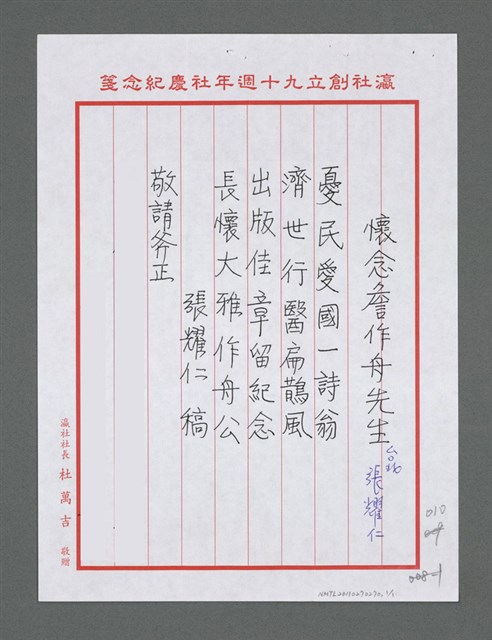 瀛社創立九十週年社慶紀念箋
懷念詹作舟先生 台北 張耀仁
憂民愛國一詩翁
濟世行醫扁鵲風
出版佳章留紀念
長懷大雅作舟公
張耀仁稿
敬請斧正
瀛社社長 杜萬吉 敬贈
010
009
008-1
NMTL20110270270, 1/1